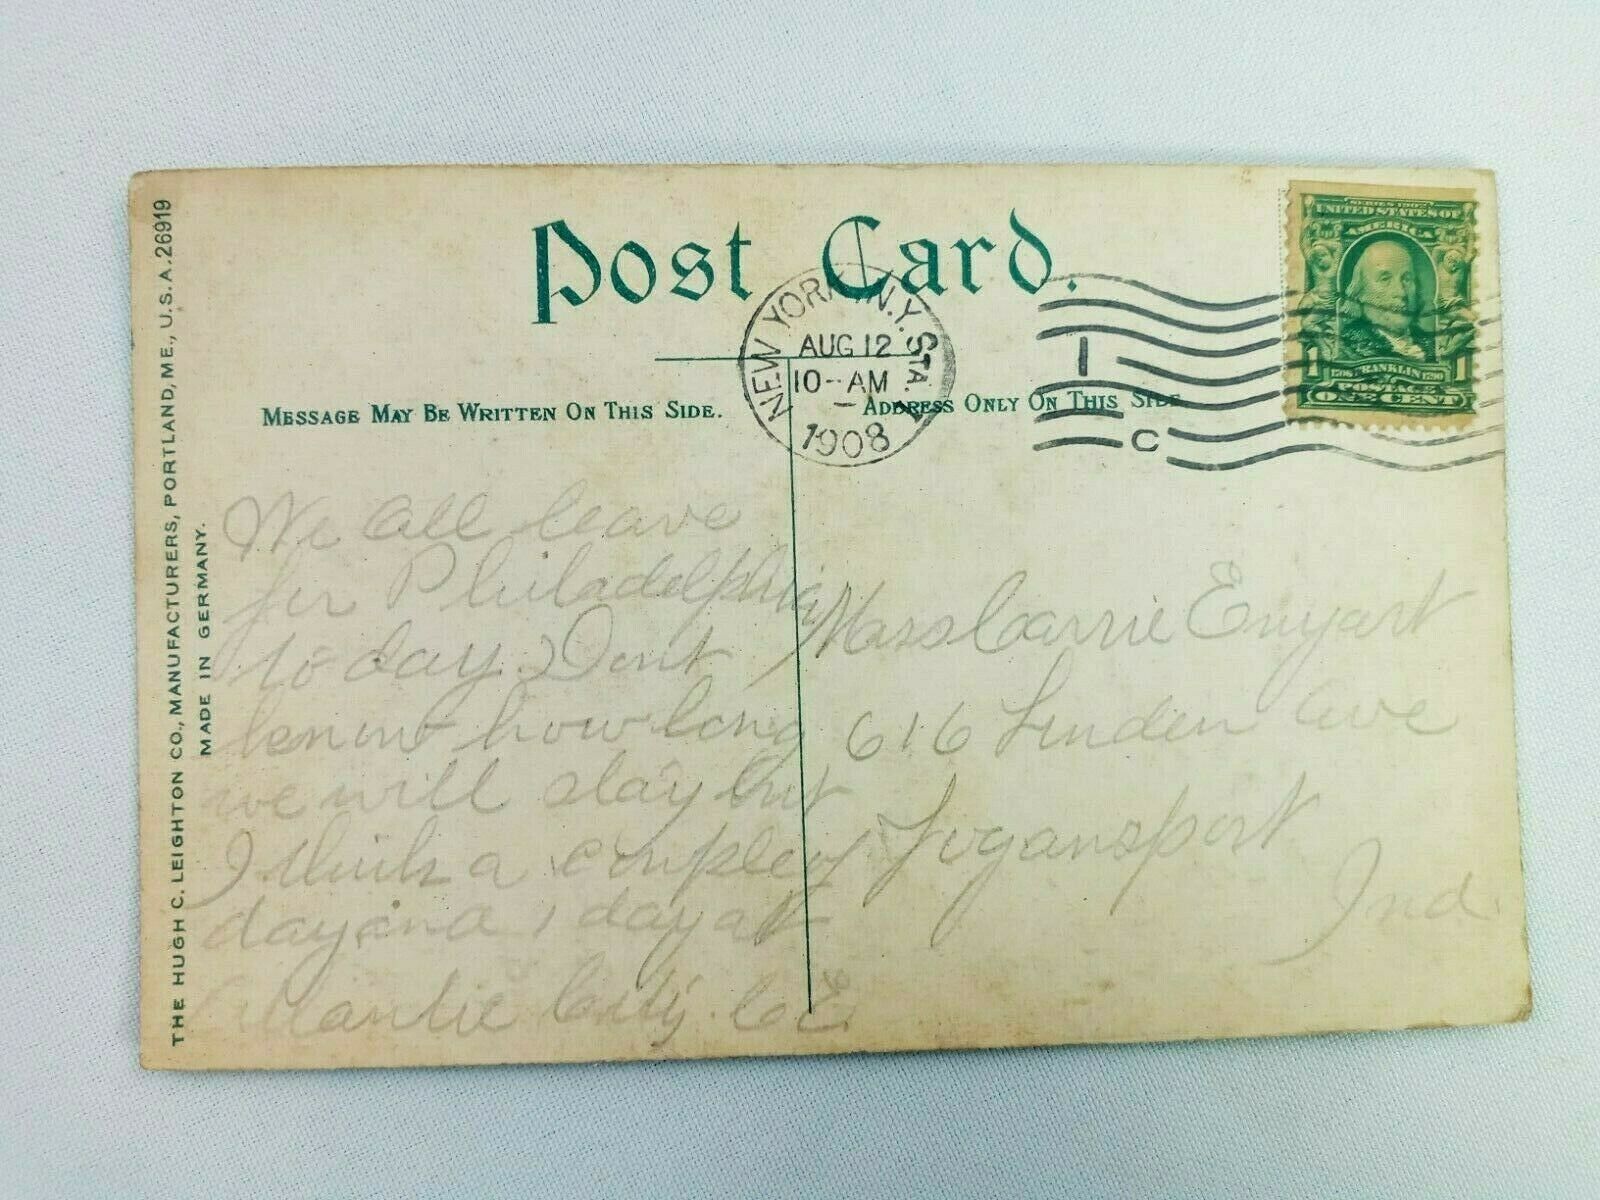 Post Card.
NEW YORK, N.Y. STA.
AUG 12
10-AM
1908
1
C
SERIES 1902
UNITED STATES OF
AMERICA
1 FRANKLIN 1
POSTAGE
ONE CENT
MESSAGE MAY BE WRITTEN ON THIS SIDE.
ADDRESS ONLY ON THIS SIDE
We all leave
for Philadelphia
to day. Dont
know how long
we will stay but
I think a couple of
day and 1 day at
Atlantic City. C E
Miss Carrie Enyart
616 Linden Ave
Logansport
Ind.
THE HUGH C. LEIGHTON CO., MANUFACTURERS, PORTLAND, ME., U.S.A. 26919
MADE IN GERMANY.